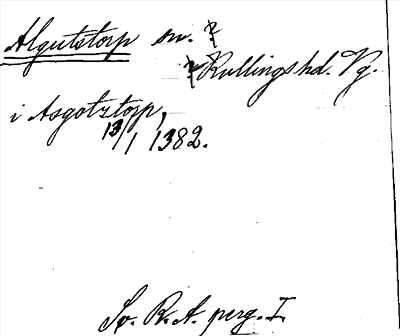 Algutstorp sn. ?
Kullings hd. Vg.
i Asgotztorp,
13/1 1382.
Sv. R.A. perg. I.